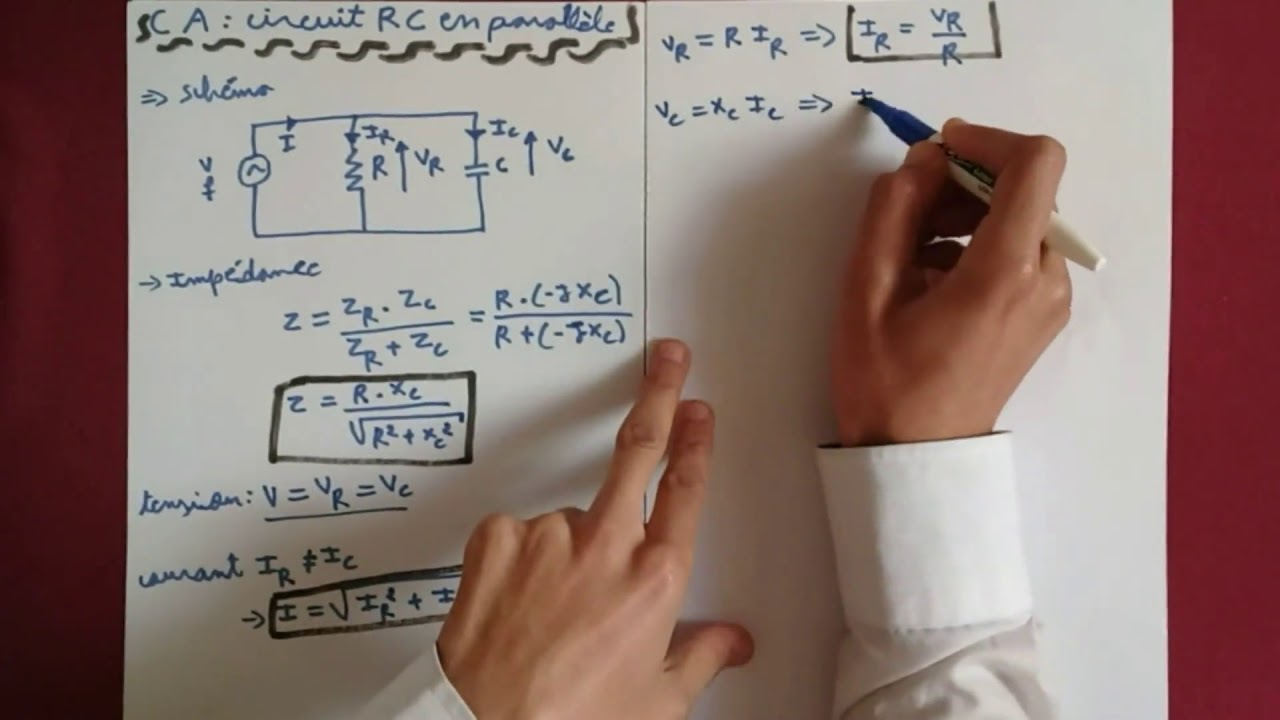 CA : circuit RC en parallèle
=> schéma
I
I_R
I_C
V
f
R
V_R
C
V_C
-> Impédance
Z = (Z_R . Z_C) / (Z_R + Z_C) = (R . (-j X_C)) / (R + (-j X_C))
Z = (R . X_C) / √(R² + X_C²)
tension : V = V_R = V_C
courant I_R ≠ I_C
-> I = √(I_R² + I
V_R = R I_R => I_R = V_R / R
V_C = X_C I_C => I